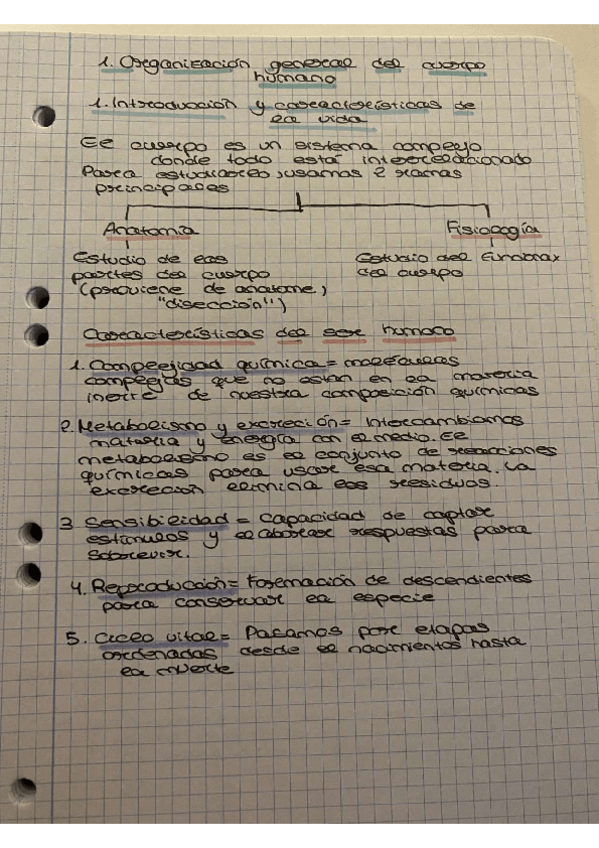 1. Organización general del cuerpo
humano
1. Introducción y características de
la vida
El cuerpo es un sistema complejo
donde todo está interrelacionado
Para estudiarlo, usamos 2 ramas
principales
Anatomía
Fisiología
Estudio de las
partes del cuerpo
(proviene de anatome,
"disección")
Estudio del
del cuerpo
Características del ser humano
1. Complejidad química = moléculas
complejas que no están en la materia
inerte de nuestra composición químicas
2. Metabolismo y excreción = Intercambiamos
materia y energía con el medio. El
metabolismo es el conjunto de reacciones
químicas para usar esa materia. La
excreción elimina los residuos.
3 Sensibilidad = Capacidad de captar
estímulos y elaborar respuestas para
4. Reproducción = Formación de descendientes
para conservar la especie
5. Ciclo vital = Pasamos por etapas
ordenadas desde el nacimientos hasta
la muerte